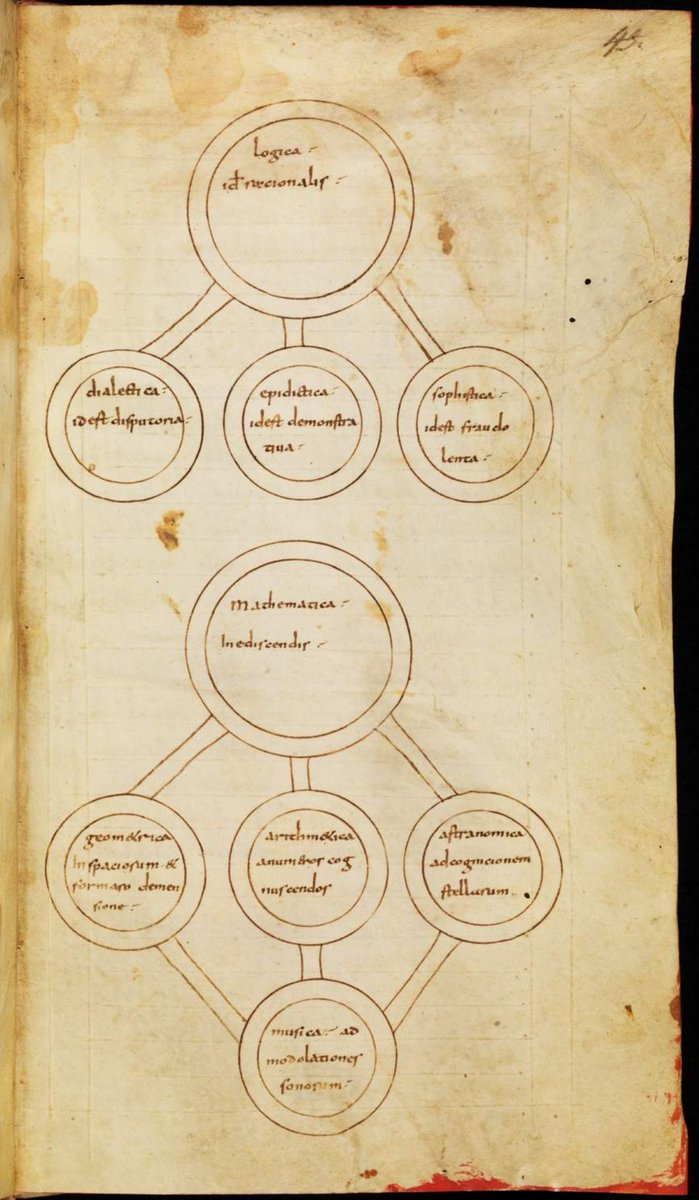 43.
logica
id racionalis
dialectica
id est disputoria
epidictica
id est demonstra
tiva
sophistica
id est fraudo
lenta
Mathematica
Inediscendis
geometrica
In spaciosum et
formaru demen
sione
arithmetica
anumeros cog
nuscendos
astranomica
ad cognicionem
stellarum
musica ad
modolationes
sonorum